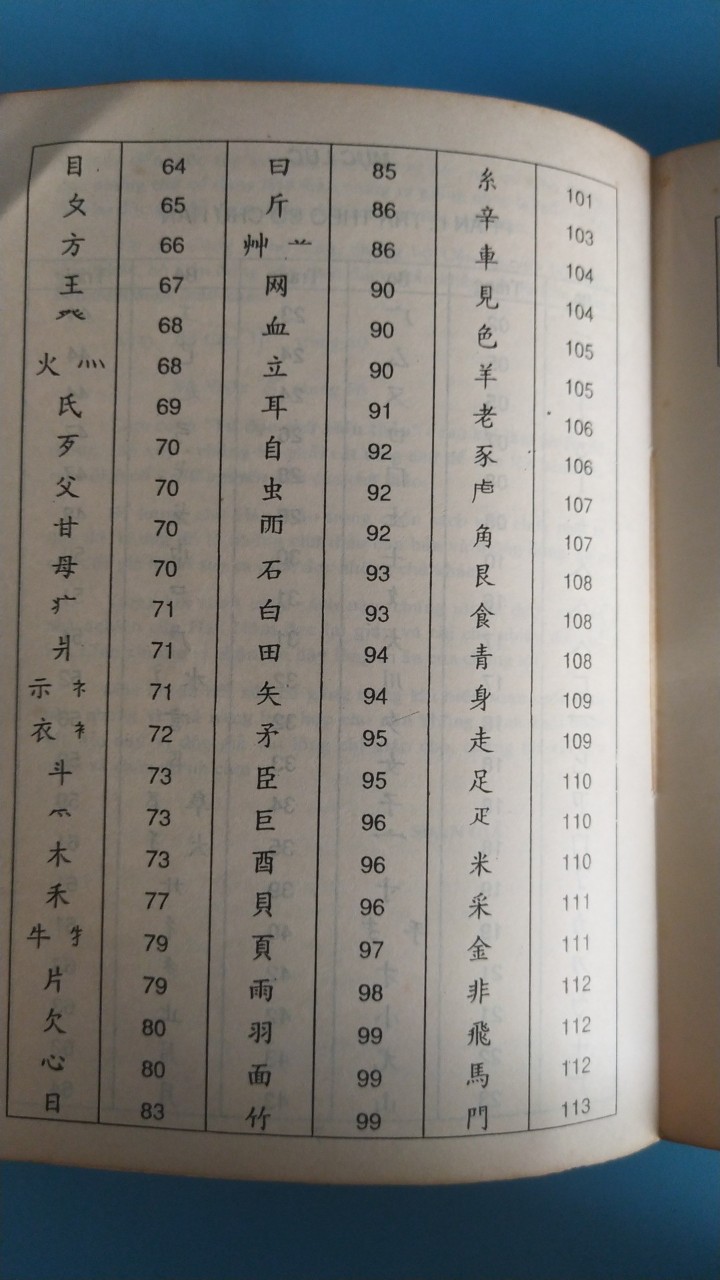 目 64 曰 85 糸 101
攵 65 斤 86 辛 103
方 66 艸 艹 86 車 104
王 67 网 90 見 104
癶 68 血 90 色 105
火 灬 68 立 90 羊 105
氏 69 耳 91 老 106
歹 70 自 92 豕 106
父 70 虫 92 虍 107
甘 70 襾 92 角 107
母 70 石 93 艮 108
疒 71 白 93 食 108
爿 71 田 94 青 108
示 礻 71 矢 94 身 109
衣 衤 72 矛 95 走 109
斗 73 臣 95 足 110
73 巨 96 疋 110
木 73 酉 96 米 110
禾 77 貝 96 采 111
牛 牜 79 頁 97 金 111
片 79 雨 98 非 112
欠 80 羽 99 飛 112
心 80 面 99 馬 112
日 83 竹 99 門 113